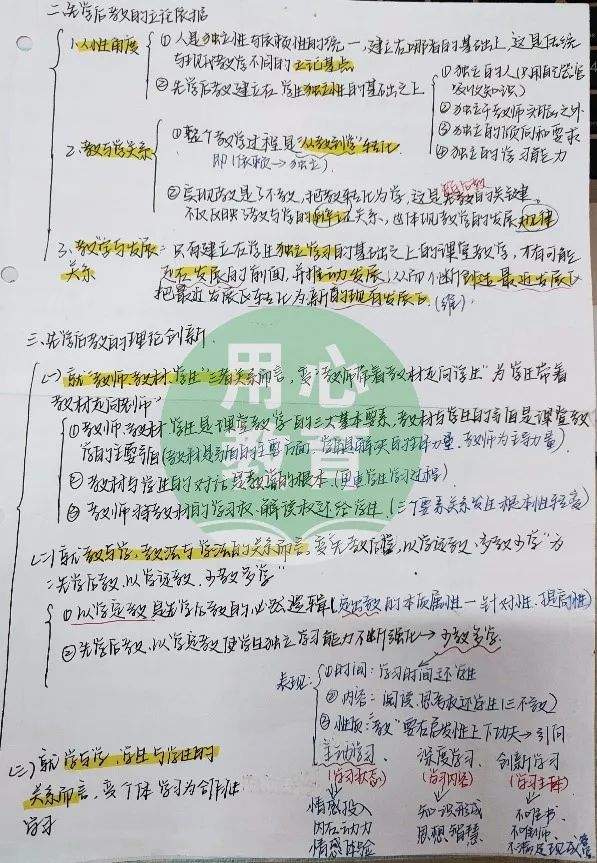 二.先学后教的立论依据
1.人性角度
①人是独立性与依赖性的统一,建立在哪者的基础上,这是传统
与现代教学不同的立论基点
②先学后教建立在学生独立性的基础之上
①独立的人(只用自己感官
吸收知识)
②独立于教师实际之外
③独立的倾向和要求
④独立的学习能力
2.教与学关系
①整个教学过程是“从教到学”转化
即(依赖→独立)
②实现教是为了不教,把教转化为学,这是先学后教的关键.
不仅反映了教与学的辩证关系,也体现教学的发展规律
3.教学与发展
关系
:只有建立在学生独立学习的基础之上的课堂教学,才有可能
走在发展的前面,并推动发展,从而不断创造最近发展区
把最近发展区转化为新的现有发展区.(维)
三.先学后教的理论创新.
(一)就“教师.教材.学生”三者关系而言,变“教师带着教材走向学生”为“学生带着
教材走向教师”
①教师.教材.学生是课堂教学的三大基本要素,教材与学生的矛盾是课堂教
学的主要矛盾(教材是矛盾的主要方面,学生是解决的主体力量,教师为主导力量)
②教材与学生的对话是教学的根本.(
③教师将教材的学习权.解读权还给学生.(三个要素关系发生根本性转变)
(二)就“教与学.教法与学法的关系”而言,变“先教后学,以学定教,多教少学”为
“先学后教,以学定教,少教多学”
①以学定教是先学后教的必然逻辑(突出教的本质属性—针对性.提高性)
②先学后教,以学定教使学生独立学习能力不断强化→少教多学.
表现:
①时间:学习时间还学生
②内容:阅读.思考权还学生(三不教)
③性质:“教”要在启发性上下功夫→引问
(三)就“学与学.学生与学生的
关系而言,变个体学习为合作性
学习
主动学习. 深度学习. 创新学习
(学习状态) (学习内容) (学习主体)
情感投入 知识形成 不唯书.
内在动力 思想智慧 不唯师.
情感体验 不满足现成答
用心
教育